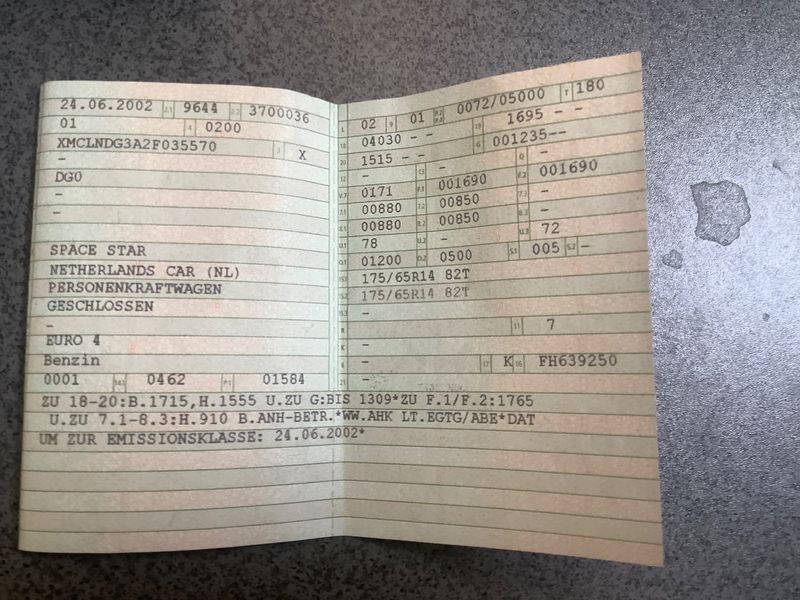 24.06.2002 2.1 9644 2.2 3700036
01 4 0200
XMCLNDG3A2F035570 3 X
-
DG0
-
-
SPACE STAR
NETHERLANDS CAR (NL)
PERSONENKRAFTWAGEN
GESCHLOSSEN
-
EURO 4
Benzin
0001 14.1 0462 P.1 01584
L 02 9 01 P.2 P.4 0072/05000 T 180
18 04030 - - 19 1695 - -
20 1515 - - G 001235--
12 - 13 - Q -
V.7 0171 F.1 001690 F.2 001690
7.1 00880 7.2 00850 7.3 -
8.1 00880 8.2 00850 8.3 -
U.1 78 U.2 - U.3 72
O.1 01200 O.2 0500 S.1 005 S.2 -
15.1 175/65R14 82T
15.2 175/65R14 82T
15.3 -
R - 11 7
K -
6 - 17 K 16 FH639250
21 -
ZU 18-20:B.1715,H.1555 U.ZU G:BIS 1309*ZU F.1/F.2:1765
U.ZU 7.1-8.3:H.910 B.ANH-BETR.*WW.AHK LT.EGTG/ABE*DAT
UM ZUR EMISSIONSKLASSE: 24.06.2002*